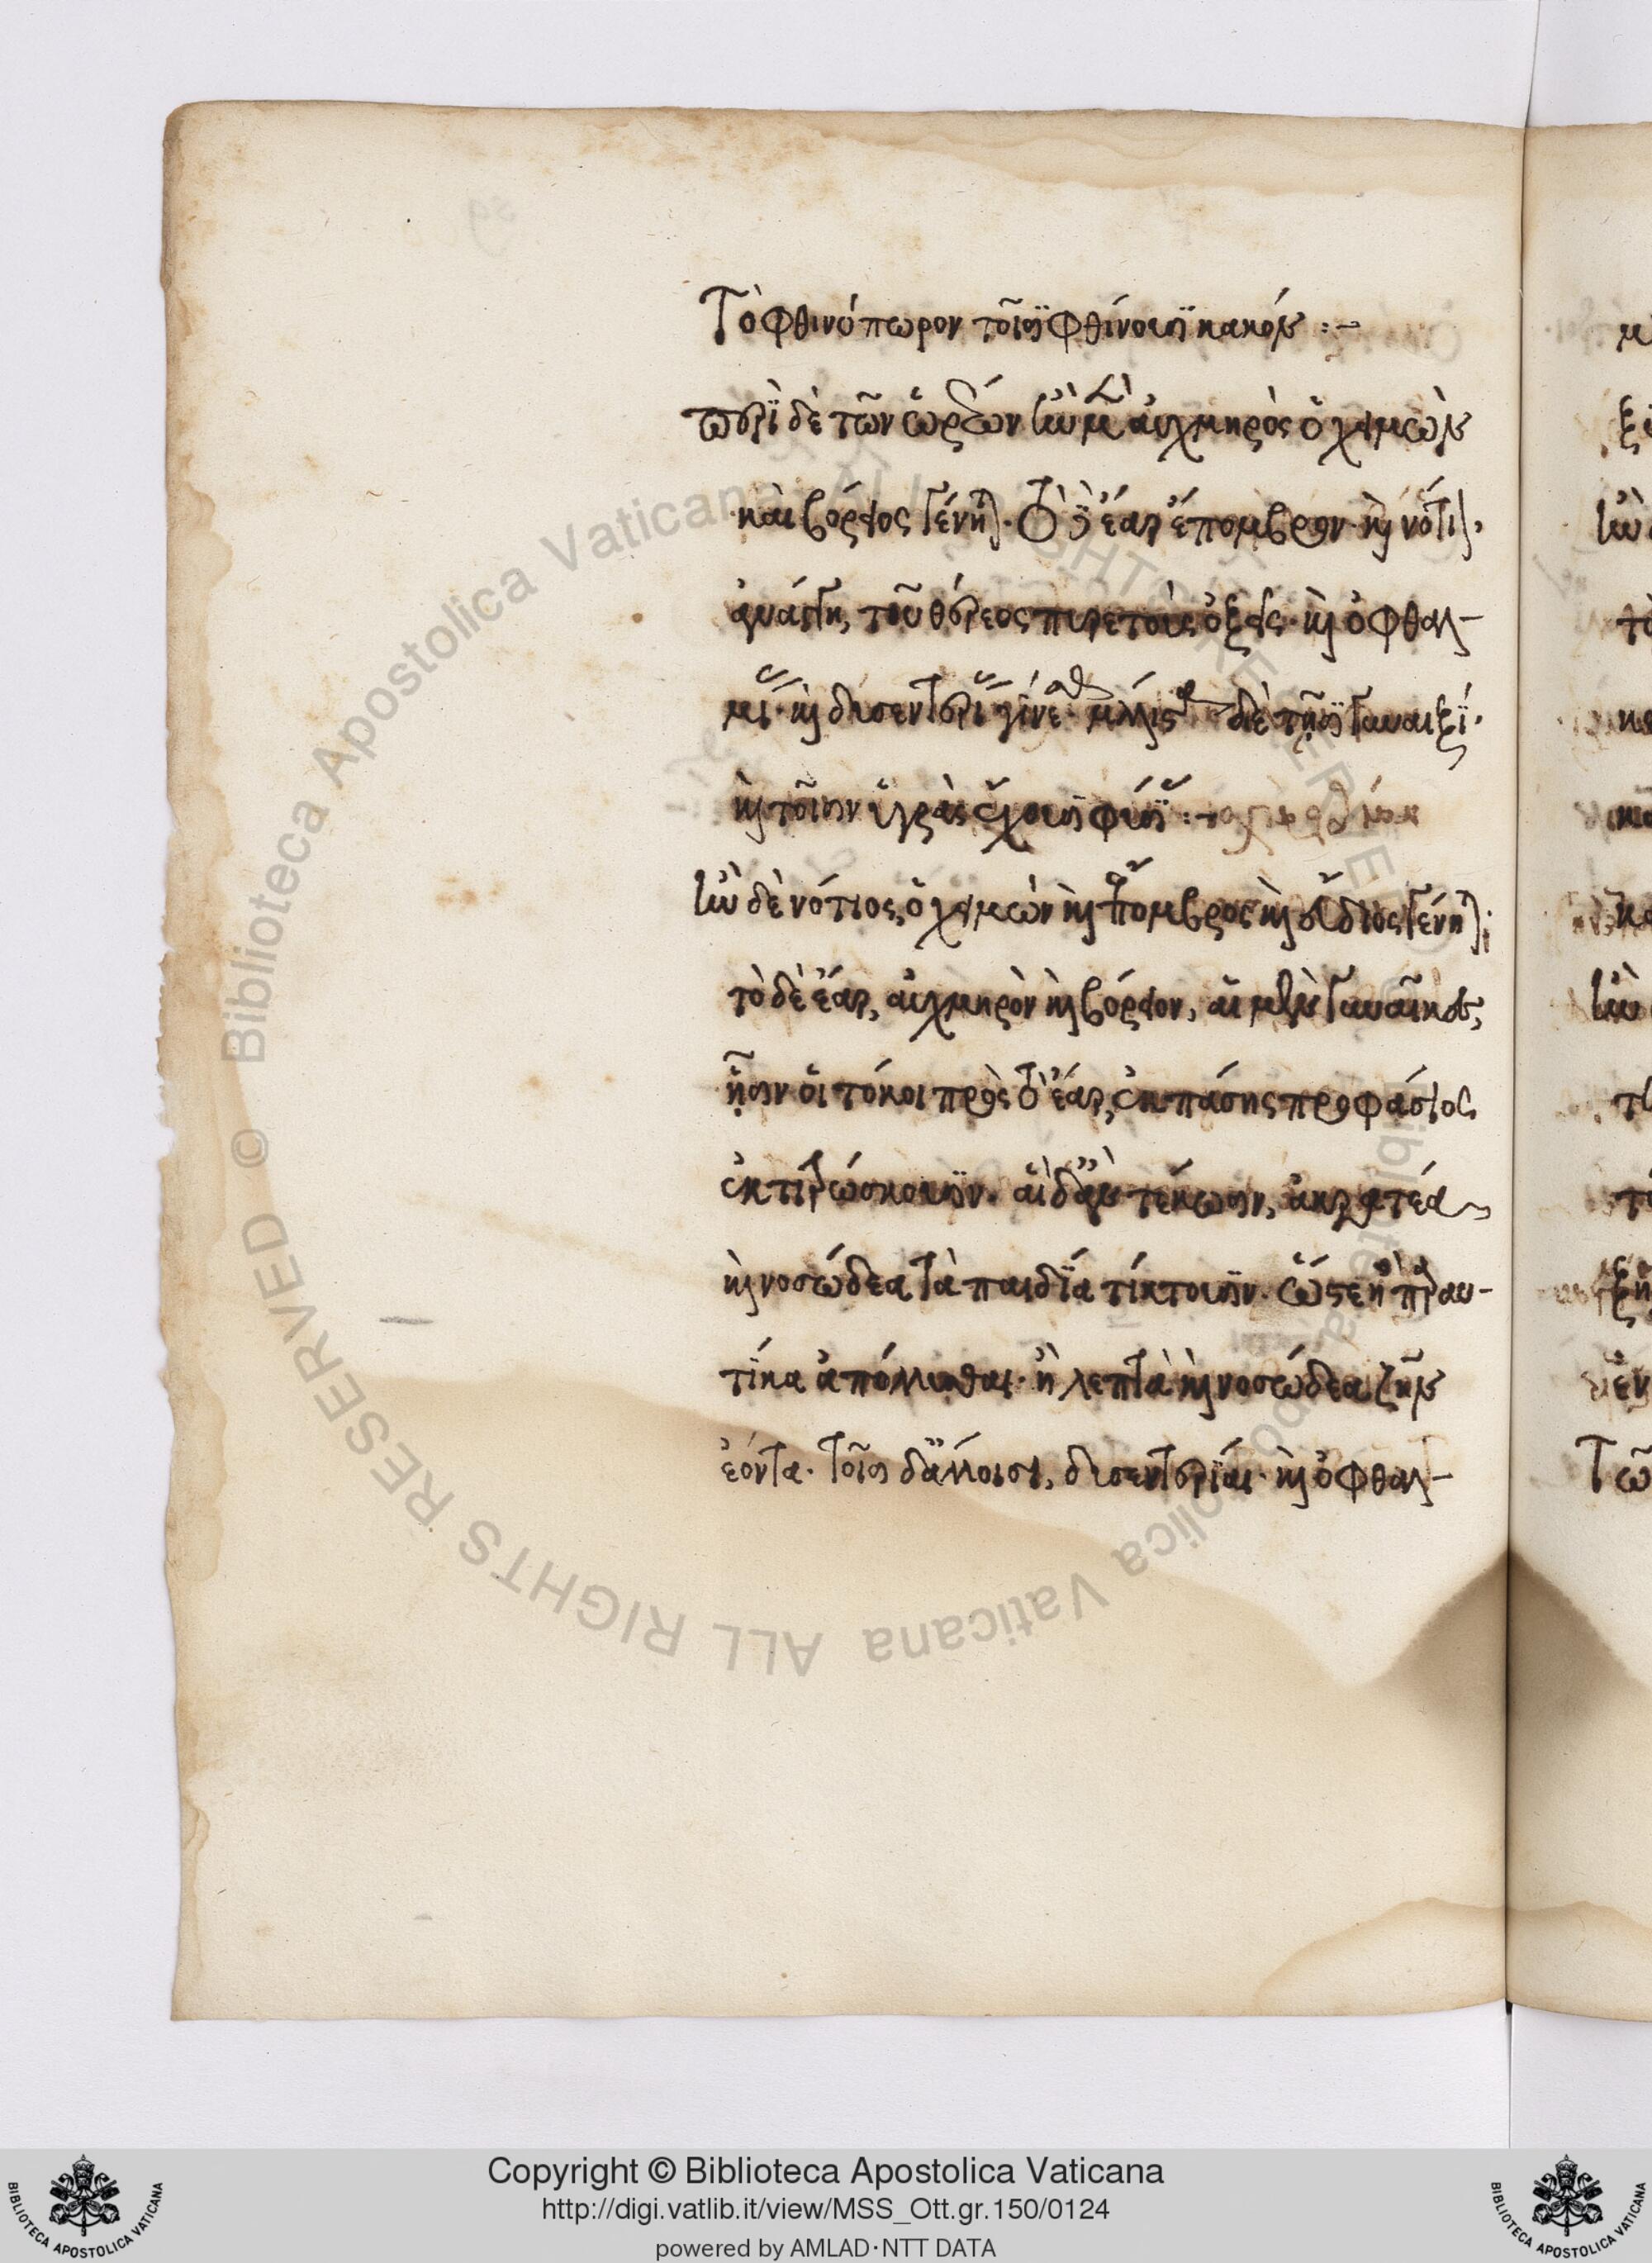 Τὸ φθινόπωρον τοῖσι φθίνουσι κακόν :-
περὶ δὲ τῶν ὡρέων ἢν μὲν αὐχμηρὸς ὁ χειμὼν
καὶ βόρειος γένηται· τὸ δὲ ἔαρ ἔπομβρον· καὶ νότιον·
ἀνάγκη, τοῦ θέρεος πυρετοὺς ὀξεῖς· καὶ ὀφθαλ-
μίας· καὶ δυσεντερίας γίνεσθαι· μάλιστα δὲ τῇσι γυναιξί·
καὶ τοῖσιν ὑγρὰς ἔχουσι φύσιας :-
ἢν δὲ νότιος, ὁ χειμὼν καὶ ἔπομβρος καὶ εὔδιος γένηται·
τὸ δὲ ἔαρ, αὐχμηρὸν καὶ βόρειον, αἱ μὲν γυναῖκες,
ᾗσιν οἱ τόκοι πρὸς τὸ ἔαρ, ἐκ πάσης προφάσιος
ἐκτιτρώσκουσιν. αἱ δ' ἂν τέκωσιν, ἀκρατέα
καὶ νοσώδεα τὰ παιδία τίκτουσιν. ὥστε ἢ παραυ-
τίκα ἀπόλλυσθαι· ἢ λεπτὰ καὶ νοσώδεα ζῆν
ἐόντα. τοῖσι δ' ἄλλοισι, δυσεντερίαι· καὶ ὀφθαλ-
© Biblioteca Apostolica Vaticana ALL RIGHTS RESERVED
Copyright © Biblioteca Apostolica Vaticana
http://digi.vatlib.it/view/MSS_Ott.gr.150/0124
powered by AMLAD·NTT DATA
BIBLIOTECA APOSTOLICA VATICANA
BIBLIOTECA APOSTOLICA VATICANA